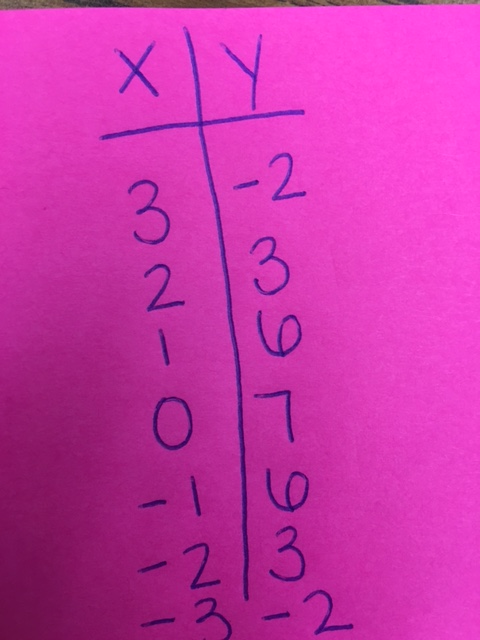 X Y
3 -2
2 3
1 6
0 7
-1 6
-2 3
-3 -2